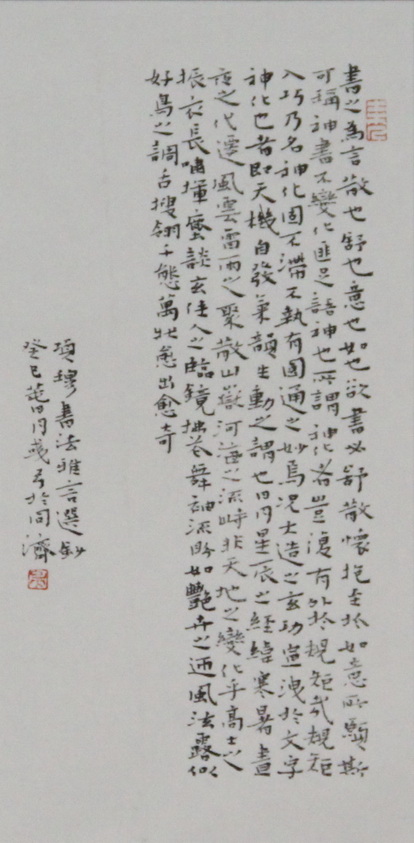 書之為言散也舒也意也如也欲書必舒散懷抱至於如意所願斯
可稱神書不變化匪足語神也所謂神化者豈復有外於規矩哉規矩
入巧乃名神化固不滯不執有圓通之妙焉況大造之玄功宣洩於文字
神化也者即天機自發氣韻生動之謂也日月星辰之經緯寒暑晝
夜之代遷風雲雷雨之聚散山嶽河海之流峙非天地之變化乎高士之
振衣長嘯揮麈談玄佳人之臨鏡拂花舞袖流盼如艷卉之迎風泫露似
好鳥之調舌搜翎千態萬狀愈出愈奇
項穆書法雅言選鈔
癸巳於同濟